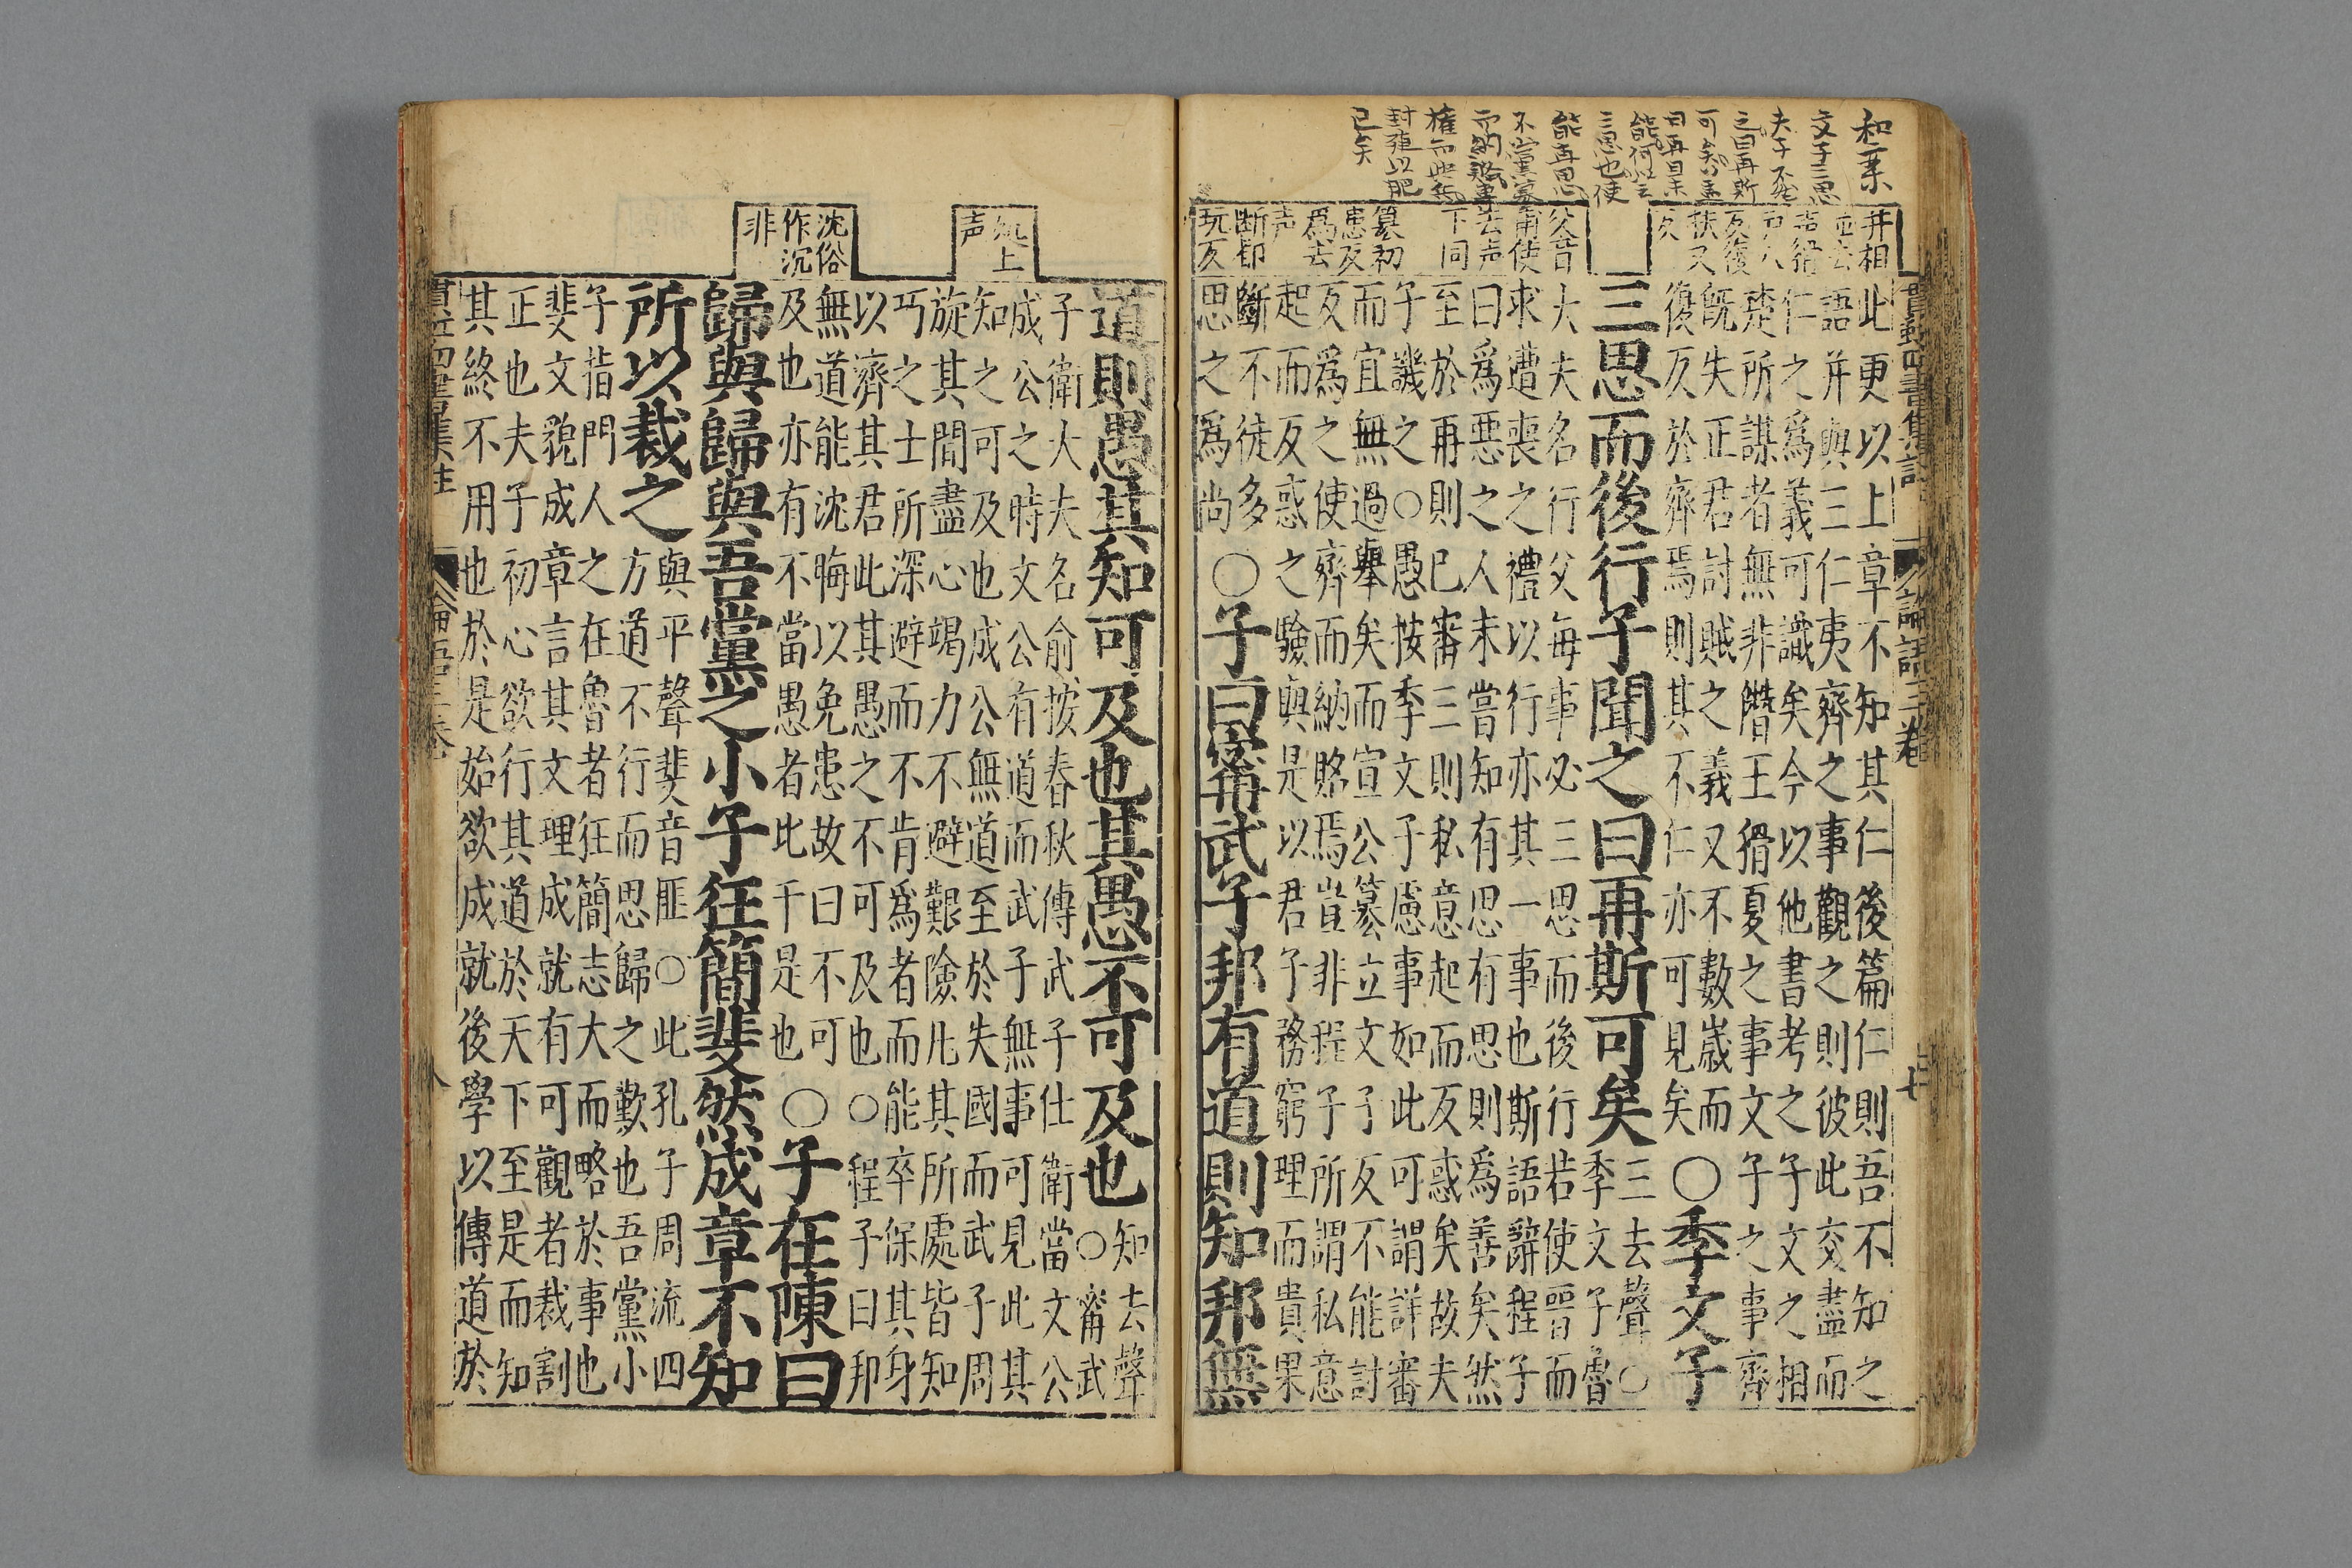 并相
声猾
反復
扶又
反
父音
甫使
去声
下同
篡初
患反
爲去
声
断都
玩反
四書集註 論語三卷 七
此更以上章不知其仁後篇仁則吾不知之
語并與三仁夷齊之事觀之則彼此交盡而
仁之爲義可識矣今以他書考之子文之相
楚所謀者無非僭王猾夏之事文子之事齊
既失正君討賊之義又不數歲而
復反於齊焉則其不仁亦可見矣
〇季文子
三思而後行子聞之曰再斯可矣
三去聲〇
季文子魯
大夫名行父每事必三思而後行若使晉而
求遭喪之禮以行亦其一事也斯語辭程子
曰爲惡之人未嘗知有思有思則爲善矣然
至於再則已審三則私意起而反惑矣故夫
子譏之〇愚按季文子慮事如此可謂詳審
而宜無過舉矣而宣公篡立文子反不能討
反爲之使齊而納賂焉豈非程子所謂私意
起而反惑之驗與是以君子務窮理而貴果
斷不徒多
思之爲尚
〇子曰甯武子邦有道則知邦無
処上
声
沈俗
作沉
非
道則愚其知可及也其愚不可及也
知去聲
〇甯武
子衛大夫名俞按春秋傳武子仕衛當文公
成公之時文公有道而武子無事可見此其
知之可及也成公無道至於失國而武子周
旋其間盡心竭力不避艱險凡其所處皆知
巧之士所深避而不肯爲者而能卒保其身
以濟其君此其愚之不可及也〇程子曰邦
無道能沈晦以免患故曰不可
及也亦有不當愚者比干是也
〇子在陳曰
歸與歸與吾黨之小子狂簡斐然成章不知
所以裁之
與平聲斐音匪〇此孔子周流四
方道不行而思歸之歎也吾黨小
子指門人之在魯者狂簡志大而略於事也
斐文貌成章言其文理成就有可觀者裁割
正也夫子初心欲行其道於天下至是而知
其終不用也於是始欲成就後學以傳道於